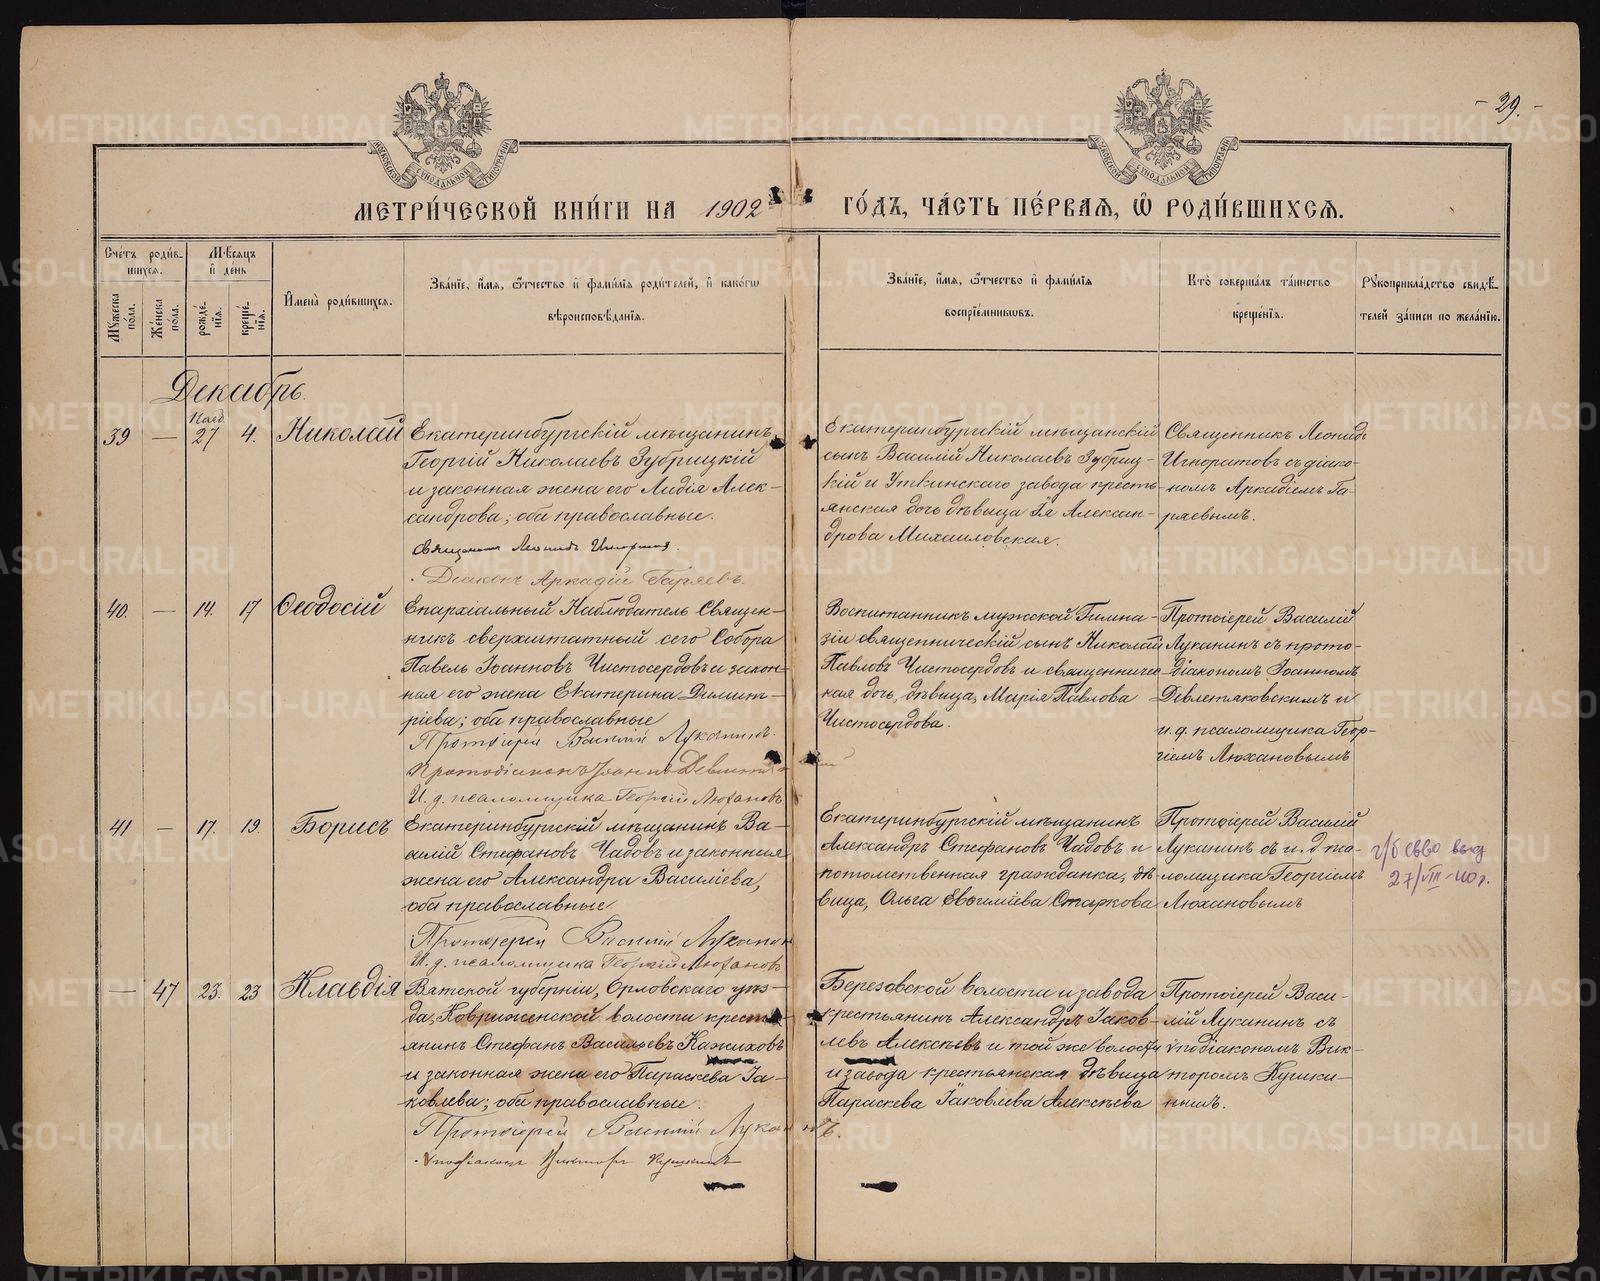 - 29. -
МЕТРИ́ЧЕСКОЙ КНИ́ГИ НА 1902 ГО́ДЪ, ЧА́СТЬ ПЕ́РВАѦ, Ѡ҆ РОДИ́ВШИХСѦ.
Сче́тъ роди́в-
шихся.
Мѣ́сяцъ
и҆ де́нь
И҆мена̀ роди́вшихся.
Зва́нїе, и҆́мя, ѻ҆́тчество и҆ фами́лїя роди́телей, и҆ како́гѡ
вѣроисповѣ́данїя.
Зва́нїе, и҆́мя, ѻ҆́тчество и҆ фами́лїя
воспрїе́мниковъ.
Кто̀ соверша́лъ та́инство
креще́нїя.
Рꙋкоприкла́дство свидѣ́-
телей за́писи по жела́нїю.
Мꙋ́жеска
по́ла.
Же́нска
по́ла.
рожде́-
нїя.
креще́-
нїя.
Декабрь.
39 — Нояб 27 4. Николай
Екатеринбургскій мѣщанинъ
Георгій Николаевъ Зубрицкій
и законная жена его Лидія Алек-
сандрова; оба православные.
Священникъ Леонидъ Игноратовъ.
Діаконъ Аркадій Гаряевъ.
Екатеринбургскій мѣщанскій
сынъ Василій Николаевъ Зубриц-
кій и Уткинскаго завода кресть-
янская дочь дѣвица Ія Алексан-
дрова Михайловская.
Священникъ Леонидъ
Игноратовъ съ діако-
номъ Аркадіемъ Га-
ряевымъ.
40. — 14. 17 Ѳеодосій
Епархіальный Наблюдатель Священ-
никъ сверхштатный сего Собора
Павелъ Іоанновъ Чистосердовъ и закон-
ная его жена Екатерина Димит-
ріева; оба православные
Протоіерей Василій Луканинъ.
Протодіаконъ Іоаннъ Девлетя
И. д. псаломщика Георгій Люхановъ
Воспитанникъ мужской Гимна-
зіи священническій сынъ Николай
Павловъ Чистосердовъ и священничес-
кая дочь, дѣвица, Марія Павлова
Чистосердова.
Протоіерей Василій
Луканинъ съ прото-
діакономъ Іоанномъ
Девлетяковскимъ и
и. д. псаломщика Геор-
гіемъ Люхановымъ
41 — 17. 19 Борисъ
Екатеринбургскій мѣщанинъ Ва-
силій Стефановъ Чадовъ и законная
жена его Александра Василіева,
оба православные.
Протоіерей Василій Луканин
И. д. псаломщика Георгій Люхановъ
Екатеринбургскій мѣщанинъ
Александръ Стефановъ Чадовъ и
потомственная гражданка, дѣ-
вица, Ольга Евѳиміева Старкова
Протоіерей Василій
Луканинъ съ и. д. пса-
ломщика Георгіемъ
Люхановымъ
27/VIII-40 г.
— 47 23. 23 Клавдія
Вятской губерніи, Орловскаго уѣз-
да, Ковриженской волости кресть-
янинъ Стефанъ Васильевъ Кажиховъ
и законная жена его Параскева Іа-
ковлева; оба православные.
Протоіерей Василій Луканинъ.
Ѵподіаконъ Викторъ Кушкинъ
Березовской волости и завода
крестьянинъ Александръ Іаков-
левъ Алексѣевъ и той же волости
и завода крестьянская дѣвица
Параскева Іаковлева Алексѣева
Протоіерей Васи-
лій Луканинъ съ
ѵподіакономъ Вик-
торомъ Кушки-
нымъ.